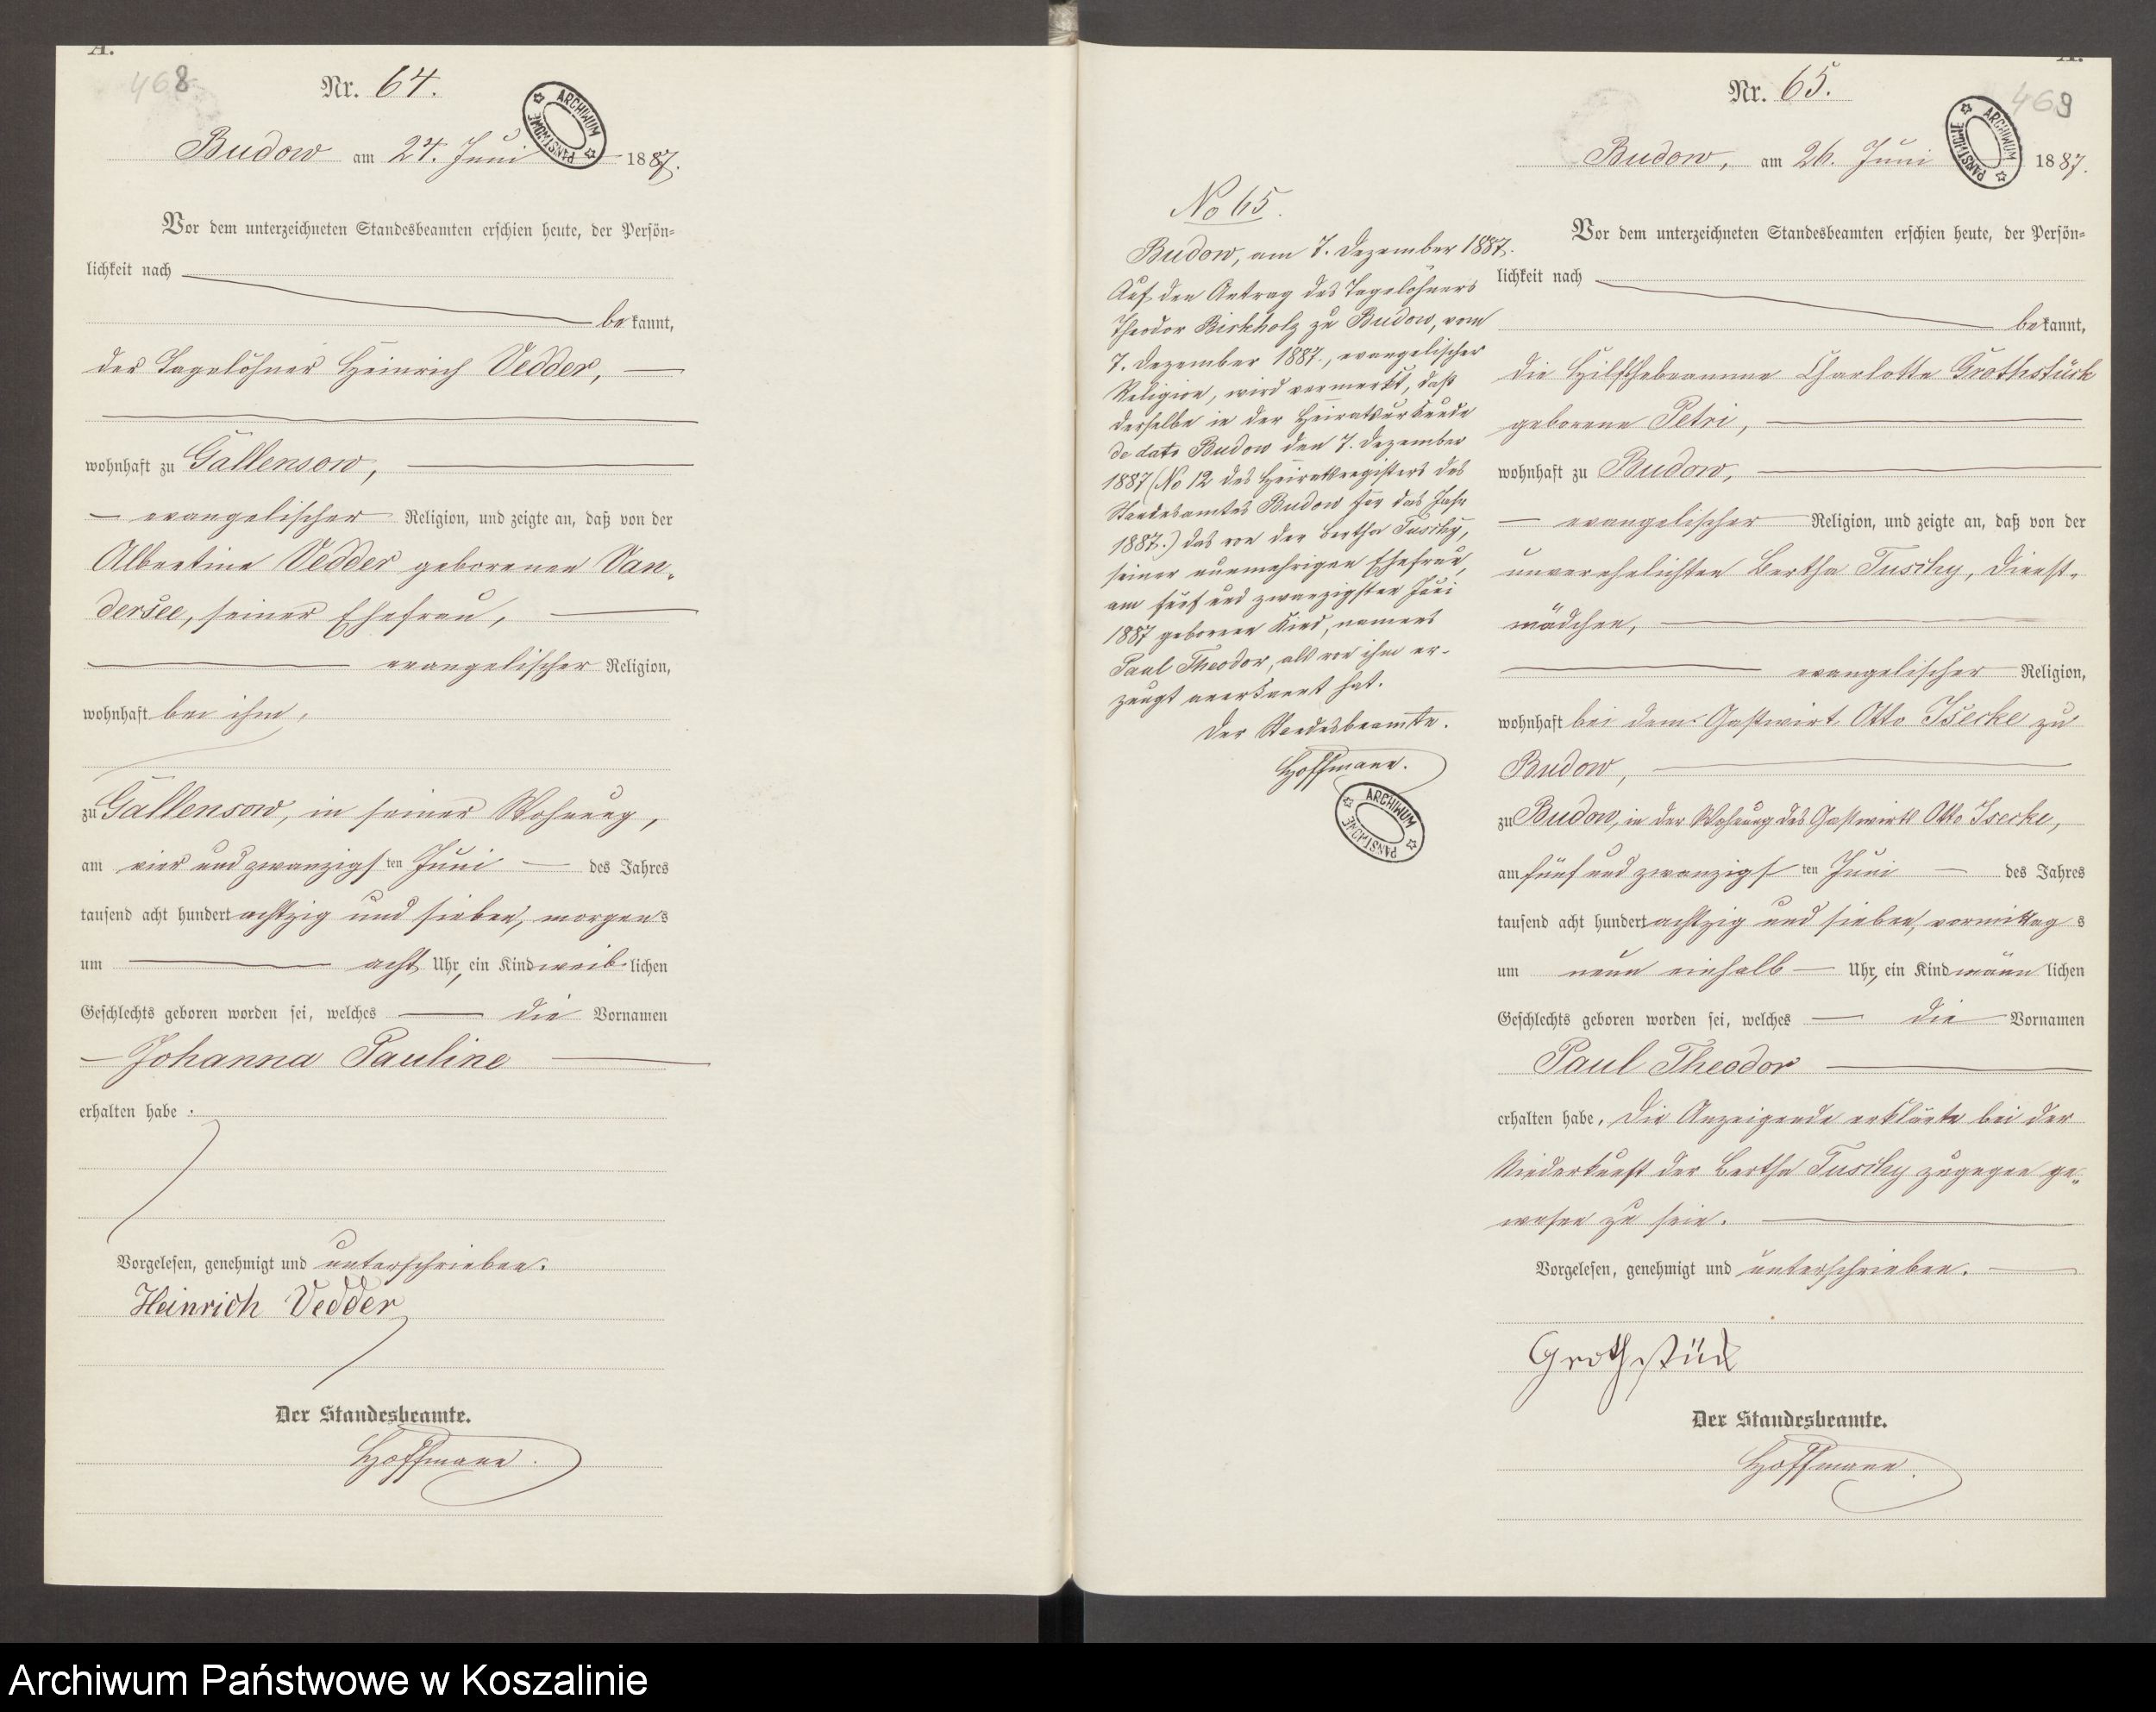 A.
468
Nr. 64.
ARCHIWUM PAŃSTWOWE
Budow am 24. Juni 1887.
Vor dem unterzeichneten Standesbeamten erschien heute, der Persön-
lichkeit nach
bekannt,
der Tagelöhner Heinrich Vedder,
wohnhaft zu Gallensow,
evangelischer Religion, und zeigte an, daß von der
Albertine Vedder geborenen Van-
dersee, seiner Ehefrau,
evangelischer Religion,
wohnhaft bei ihm,
zu Gallensow, in seiner Wohnung,
am vier und zwanzigsten Juni des Jahres
tausend acht hundert achtzig und sieben, morgens
um acht Uhr, ein Kind weiblichen
Geschlechts geboren worden sei, welches die Vornamen
Johanna Pauline
erhalten habe.
Vorgelesen, genehmigt und unterschrieben.
Heinrich Vedder
Der Standesbeamte.
Hoffmann.
No 65.
Budow, am 7. Dezember 1887.
Auf den Antrag des Tagelöhners
Theodor Birkholz zu Budow, vom
7. Dezember 1887., evangelischer
Religion, wird vermerkt, daß
derselbe in der Heiratsurkunde
de dato Budow den 7. Dezember
1887 (No 12 des Heiratsregisters des
Standesamtes Budow für das Jahr
1887.) das von der Bertha Tuschy,
seiner nunmehrigen Ehefrau,
am fünf und zwanzigsten Juni
1887 geborene Kind, namens
Paul Theodor, als von ihm er-
zeugt anerkannt hat.
Der Standesbeamte.
Hoffmann.
ARCHIWUM PAŃSTWOWE
A.
469
Nr. 65.
ARCHIWUM PAŃSTWOWE
Budow, am 26. Juni 1887.
Vor dem unterzeichneten Standesbeamten erschien heute, der Persön-
lichkeit nach
bekannt,
die Hilfshebeamme Charlotte Grothstück
geborene Petri,
wohnhaft zu Budow,
evangelischer Religion, und zeigte an, daß von der
unverehelichten Bertha Tuschy, Dienst-
mädchen,
evangelischer Religion,
wohnhaft bei dem Gastwirt Otto Isecke zu
Budow,
zu Budow, in der Wohnung des Gastwirts Otto Isecke,
am fünf und zwanzigsten Juni des Jahres
tausend acht hundert achtzig und sieben, vormittags
um neun einhalb Uhr, ein Kind männlichen
Geschlechts geboren worden sei, welches die Vornamen
Paul Theodor
erhalten habe. Die Anzeigende erklärte bei der
Niederkunft der Bertha Tuschy zugegen ge-
wesen zu sein.
Vorgelesen, genehmigt und unterschrieben.
Grothstück
Der Standesbeamte.
Hoffmann.
Archiwum Państwowe w Koszalinie